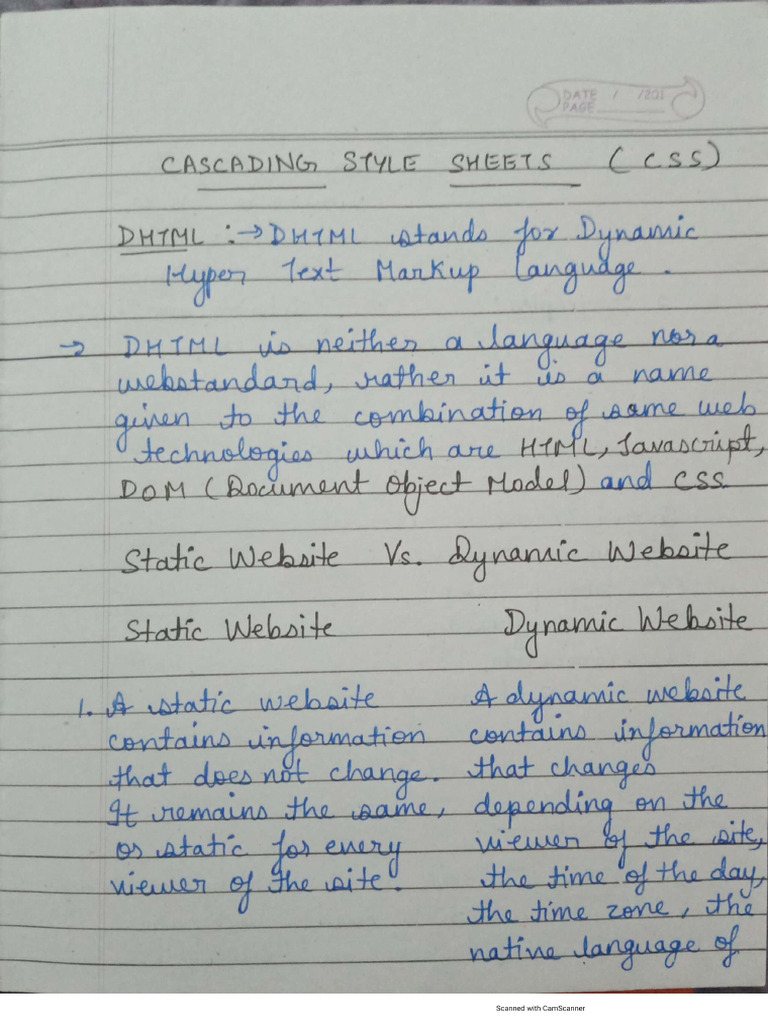 DATE / /201
PAGE
CASCADING STYLE SHEETS (CSS)
DHTML :→ DHTML stands for Dynamic
Hyper Text Markup Language.
→ DHTML is neither a language nor a
webstandard, rather it is a name
given to the combination of some web
technologies which are HTML, Javascript,
DOM (Document Object Model) and CSS
Static Website Vs. Dynamic Website
Static Website Dynamic Website
1. A static website A dynamic website
contains information contains information
that does not change. that changes
It remains the same, depending on the
or static for every viewer of the site,
viewer of the site. the time of the day,
the time zone, the
native language of
Scanned with CamScanner